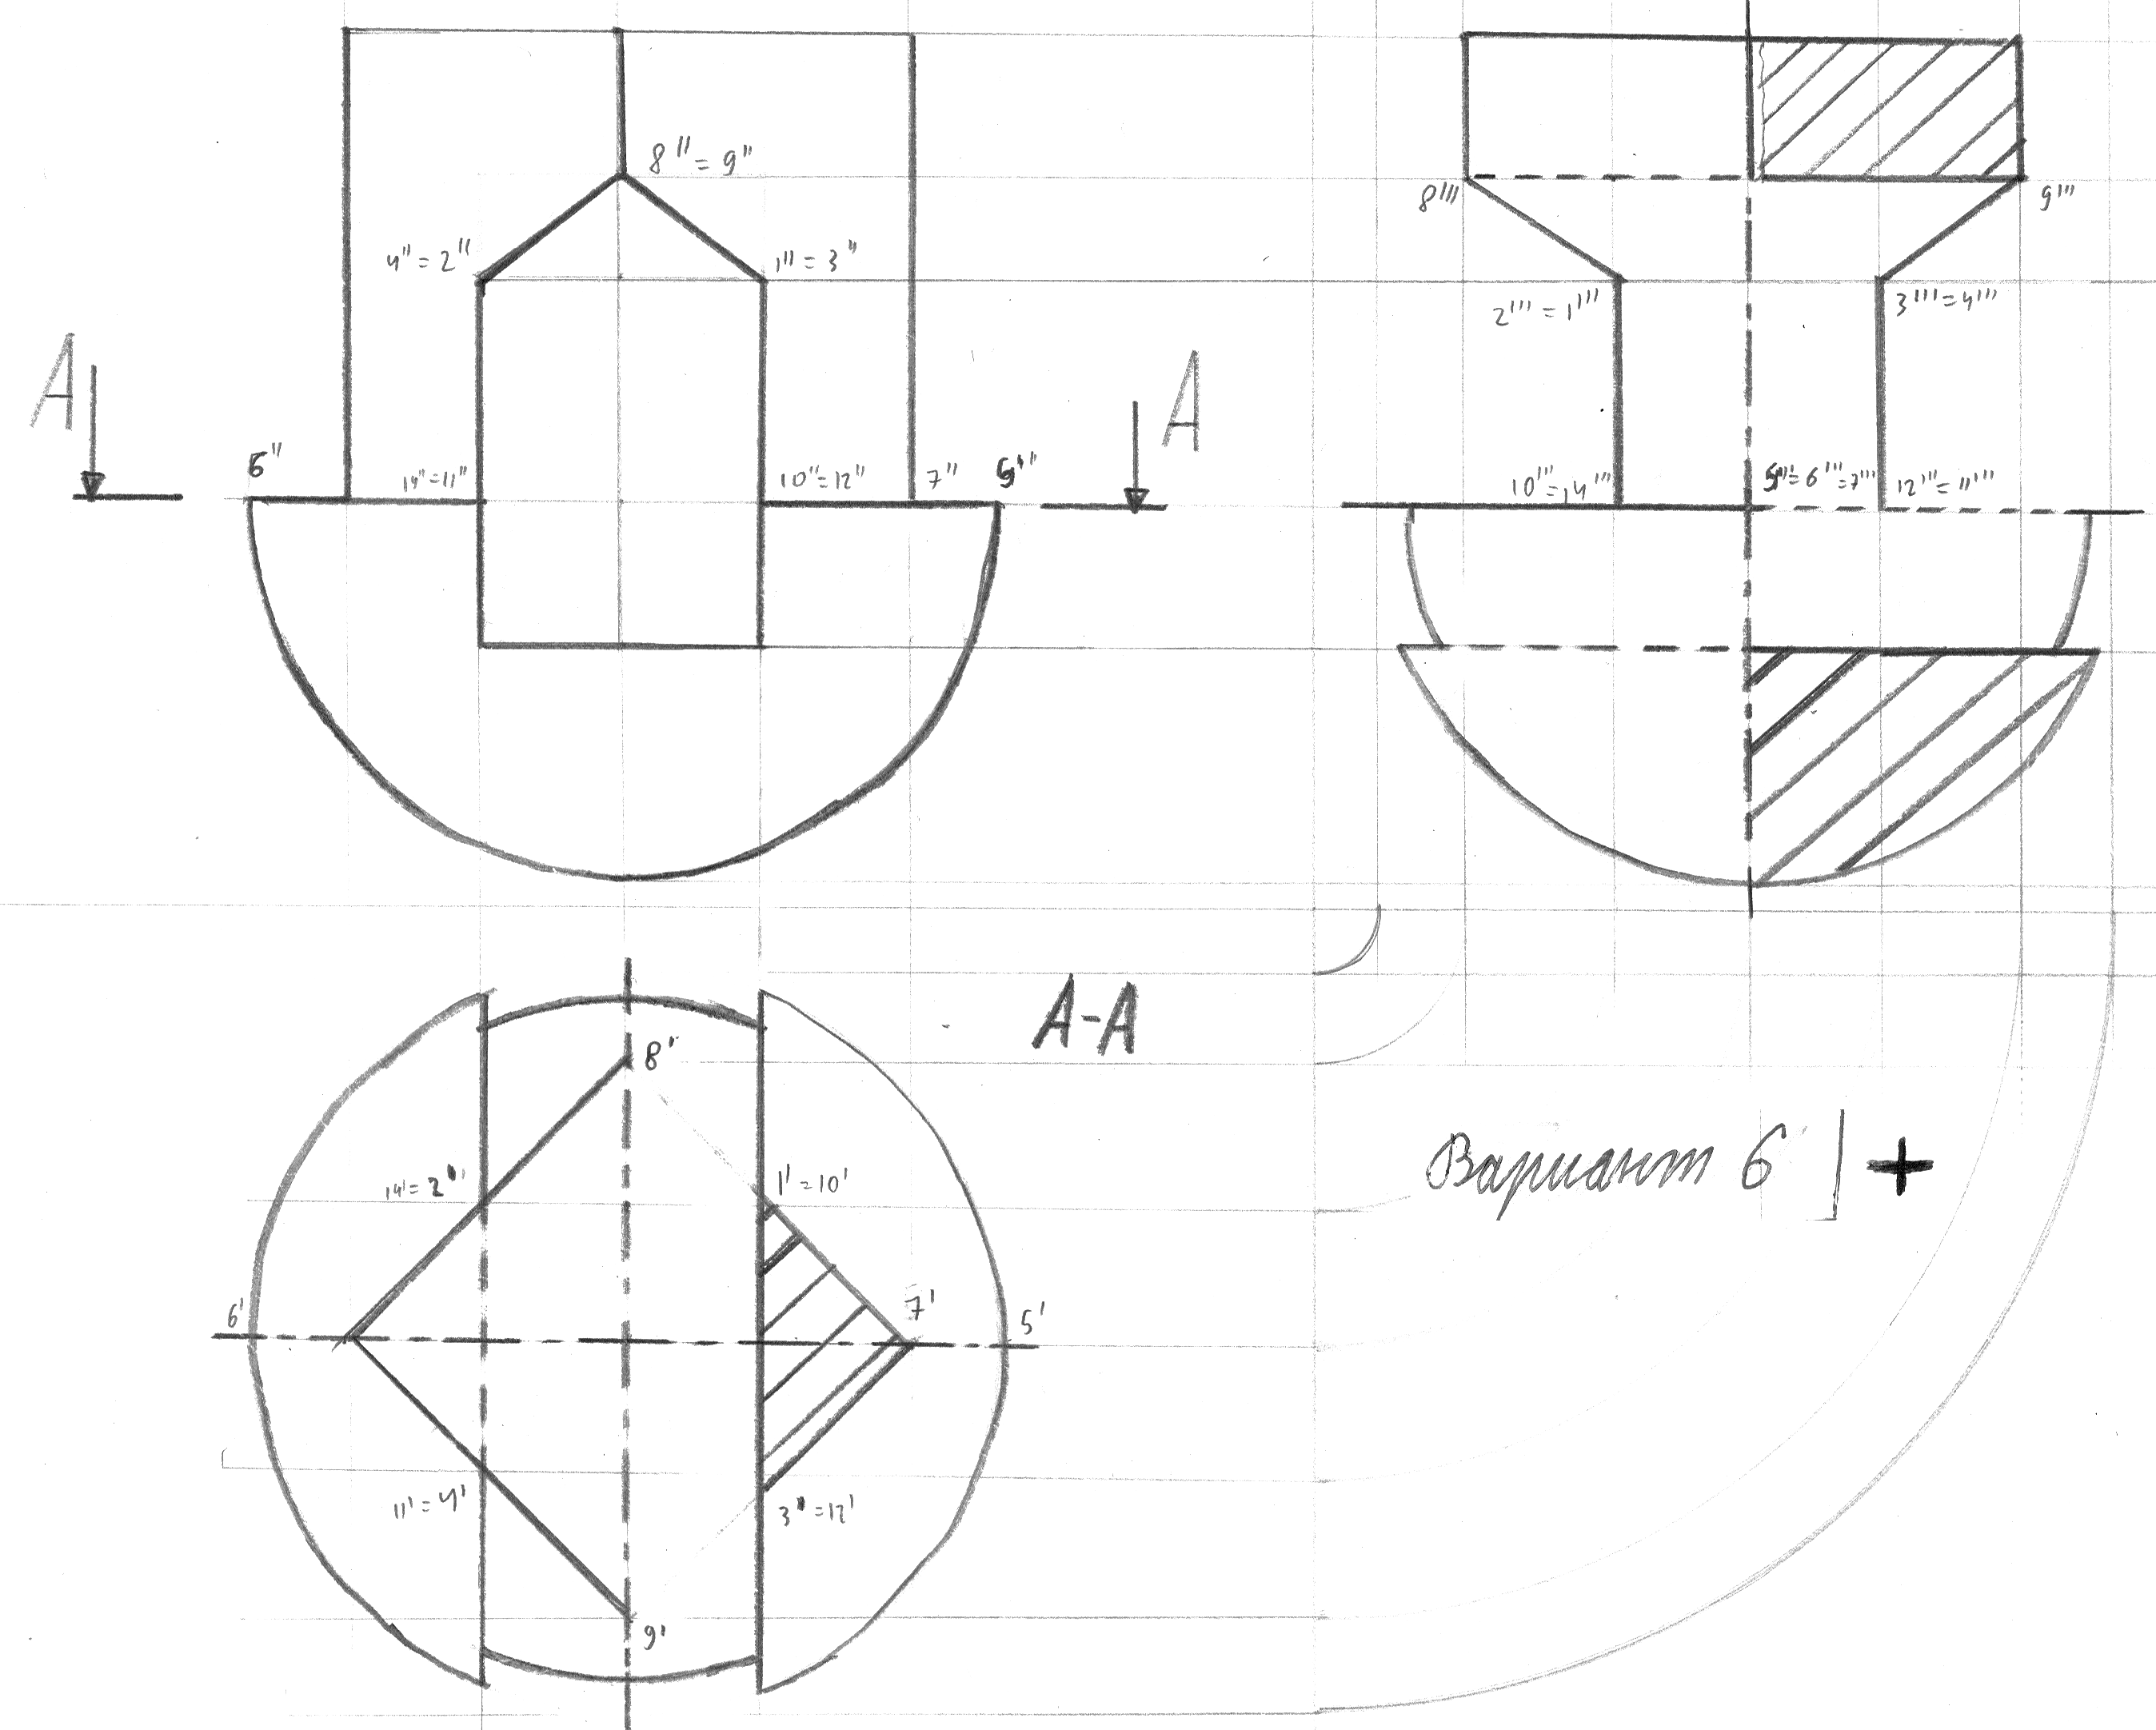 8" = 9"
4" = 2"
1" = 3"
A
A
6"
14" = 11"
10" = 12"
7"
5"
8'''
9'''
2''' = 1'''
3''' = 4'''
10''' = 14'''
5''' = 6''' = 7'''
12''' = 11'''
A-A
8'
14' = 2'
1' = 10'
6'
7'
5'
11' = 4'
3' = 12'
9'
Вариант 6